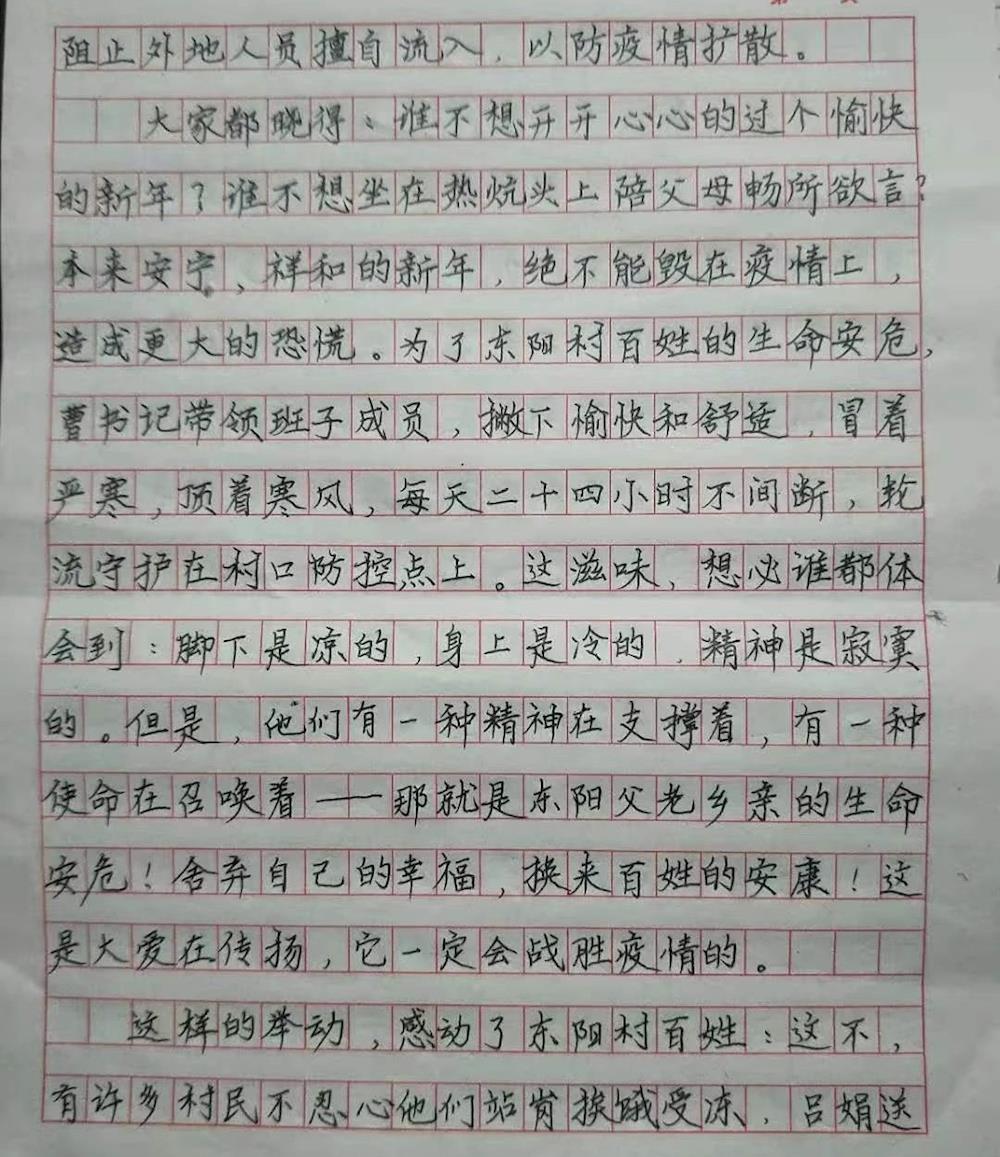 阻止外地人员擅自流入，以防疫情扩散。
大家都晓得：谁不想开开心心的过个愉快
的新年？谁不想坐在热炕头上陪父母畅所欲言？
本来安宁、祥和的新年，绝不能毁在疫情上，
造成更大的恐慌。为了东阳村百姓的生命安危，
曹书记带领班子成员，撇下愉快和舒适，冒着
严寒，顶着寒风，每天二十四小时不间断，轮
流守护在村口防控点上。这滋味，想必谁都体
会到：脚下是凉的，身上是冷的，精神是寂寞
的。但是，他们有一种精神在支撑着，有一种
使命在召唤着——那就是东阳父老乡亲的生命
安危！舍弃自己的幸福，换来百姓的安康！这
是大爱在传扬，它一定会战胜疫情的。
这样的举动，感动了东阳村百姓：这不，
有许多村民不忍心他们站岗挨饿受冻，吕娟送